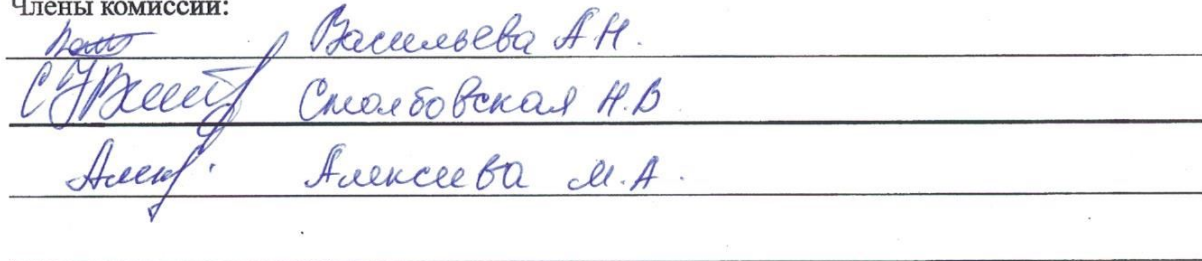 Члены комиссии:
Васильева А.Н.
Столбовская Н.В
Алексеева М.А.